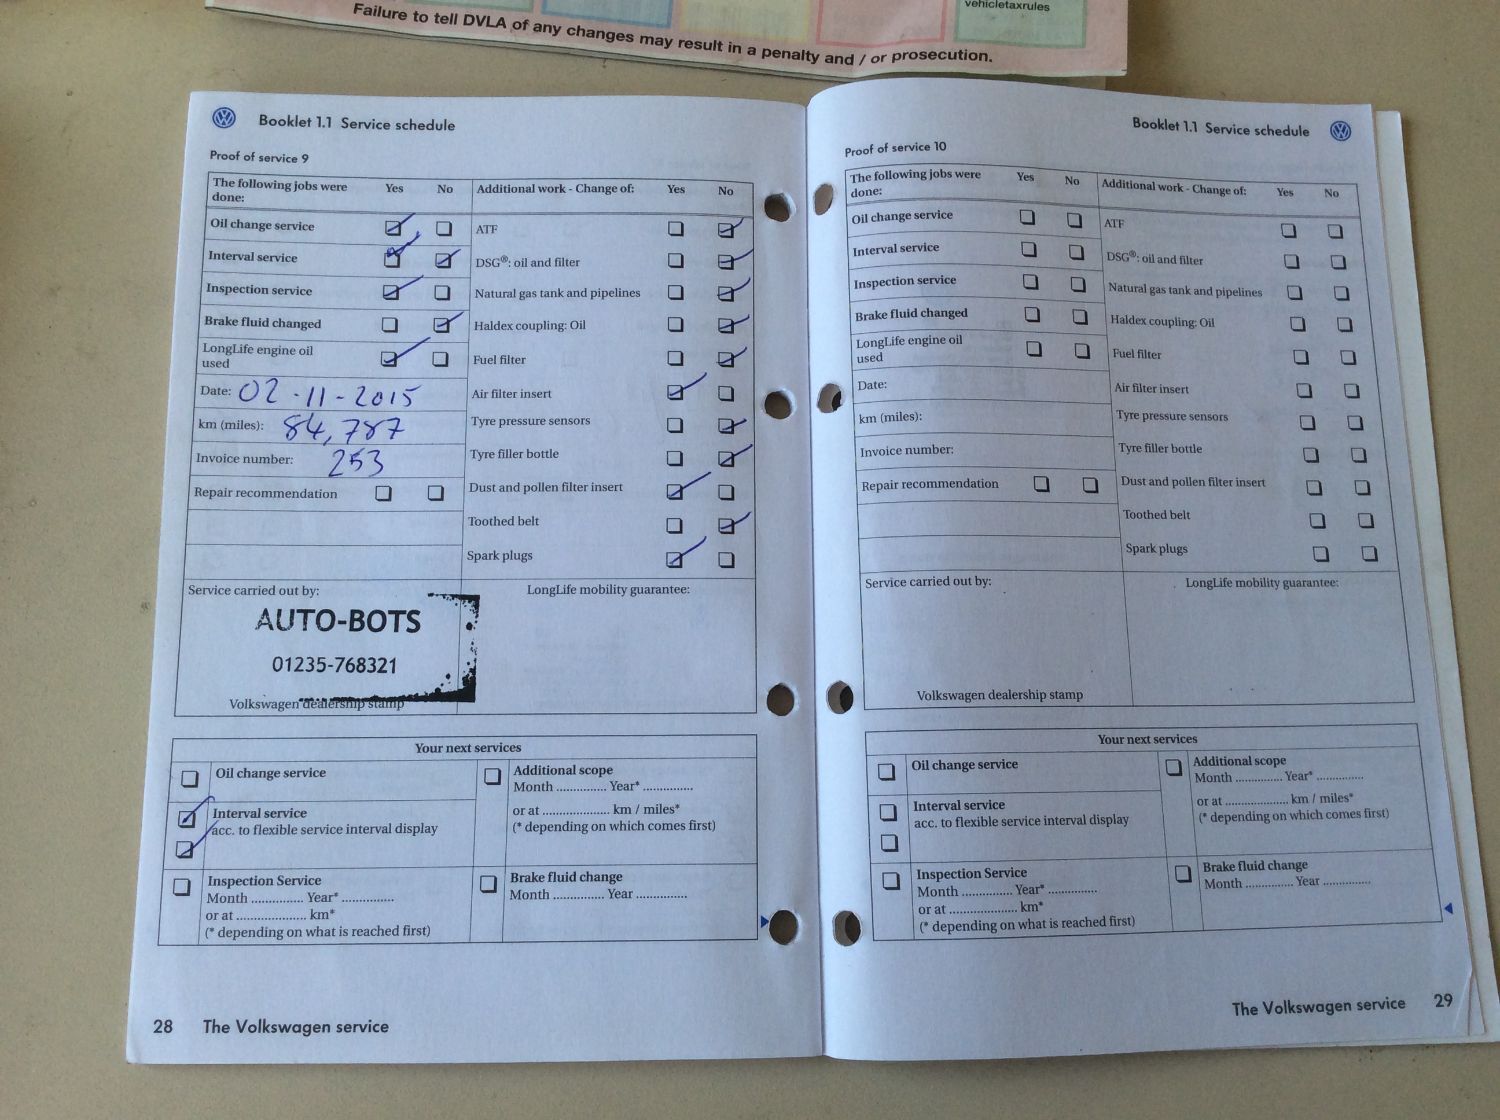 vehicletaxrules
Failure to tell DVLA of any changes may result in a penalty and / or prosecution.
Booklet 1.1 Service schedule
Proof of service 9
The following jobs were done: Yes No
Additional work - Change of: Yes No
Oil change service
Interval service
Inspection service
Brake fluid changed
LongLife engine oil
used
Date: 02-11-2015
km (miles): 84,787
Invoice number: 253
Repair recommendation
ATF
DSG®: oil and filter
Natural gas tank and pipelines
Haldex coupling: Oil
Fuel filter
Air filter insert
Tyre pressure sensors
Tyre filler bottle
Dust and pollen filter insert
Toothed belt
Spark plugs
Service carried out by:
AUTO-BOTS
01235-768321
Volkswagen dealership stamp
LongLife mobility guarantee:
Your next services
Oil change service
Interval service
acc. to flexible service interval display
Inspection Service
Month .............. Year* ..............
or at ..................... km*
(* depending on what is reached first)
Additional scope
Month .............. Year* ..............
or at .................... km / miles*
(* depending on which comes first)
Brake fluid change
Month .............. Year ..............
28 The Volkswagen service
Booklet 1.1 Service schedule
Proof of service 10
The following jobs were
done: Yes No
Additional work - Change of: Yes No
Oil change service
Interval service
Inspection service
Brake fluid changed
LongLife engine oil
used
Date:
km (miles):
Invoice number:
Repair recommendation
ATF
DSG®: oil and filter
Natural gas tank and pipelines
Haldex coupling: Oil
Fuel filter
Air filter insert
Tyre pressure sensors
Tyre filler bottle
Dust and pollen filter insert
Toothed belt
Spark plugs
Service carried out by:
Volkswagen dealership stamp
LongLife mobility guarantee:
Your next services
Oil change service
Interval service
acc. to flexible service interval display
Inspection Service
Month .............. Year* ..............
or at ..................... km*
(* depending on what is reached first)
Additional scope
Month .............. Year* ..............
or at .................... km / miles*
(* depending on which comes first)
Brake fluid change
Month .............. Year ..............
The Volkswagen service 29